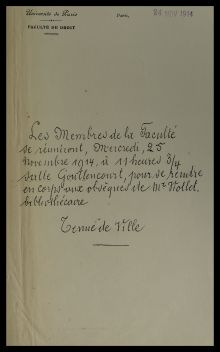 Université de Paris
FACULTÉ DE DROIT
Paris,
24 NOV 1914
Les Membres de la Faculté
se réuniront, Mercredi, 25
novembre 1914, à 11 heures 3/4
salle Goullencourt, pour se rendre
en corps aux obsèques de Mr Viollet,
bibliothécaire
Tenue de Ville